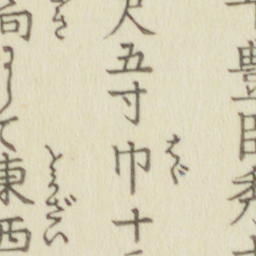 豊臣秀
尺五寸巾十
はゞ
向して東西
とうざい